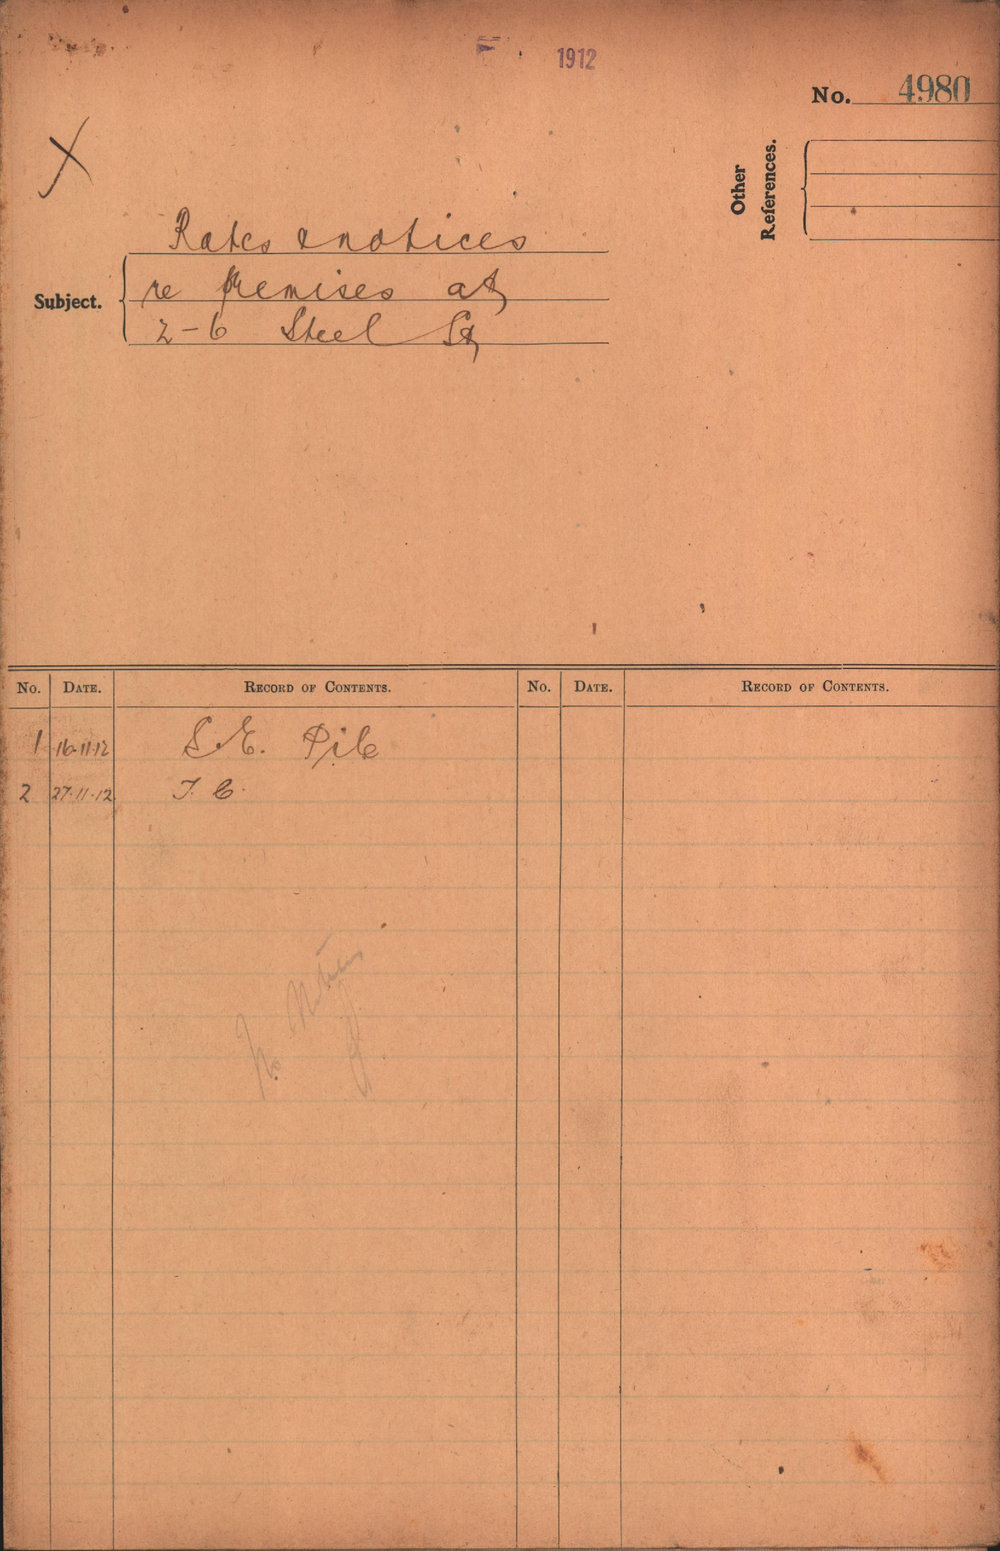 1912
No. 4980
X
Other
References.
Rates & notices
Subject.
re premises at
2-6 Steel St
No. DATE. RECORD OF CONTENTS. No. DATE. RECORD OF CONTENTS.
1 16.11.12 S.E. Pile
2 27.11.12 T. C.
No